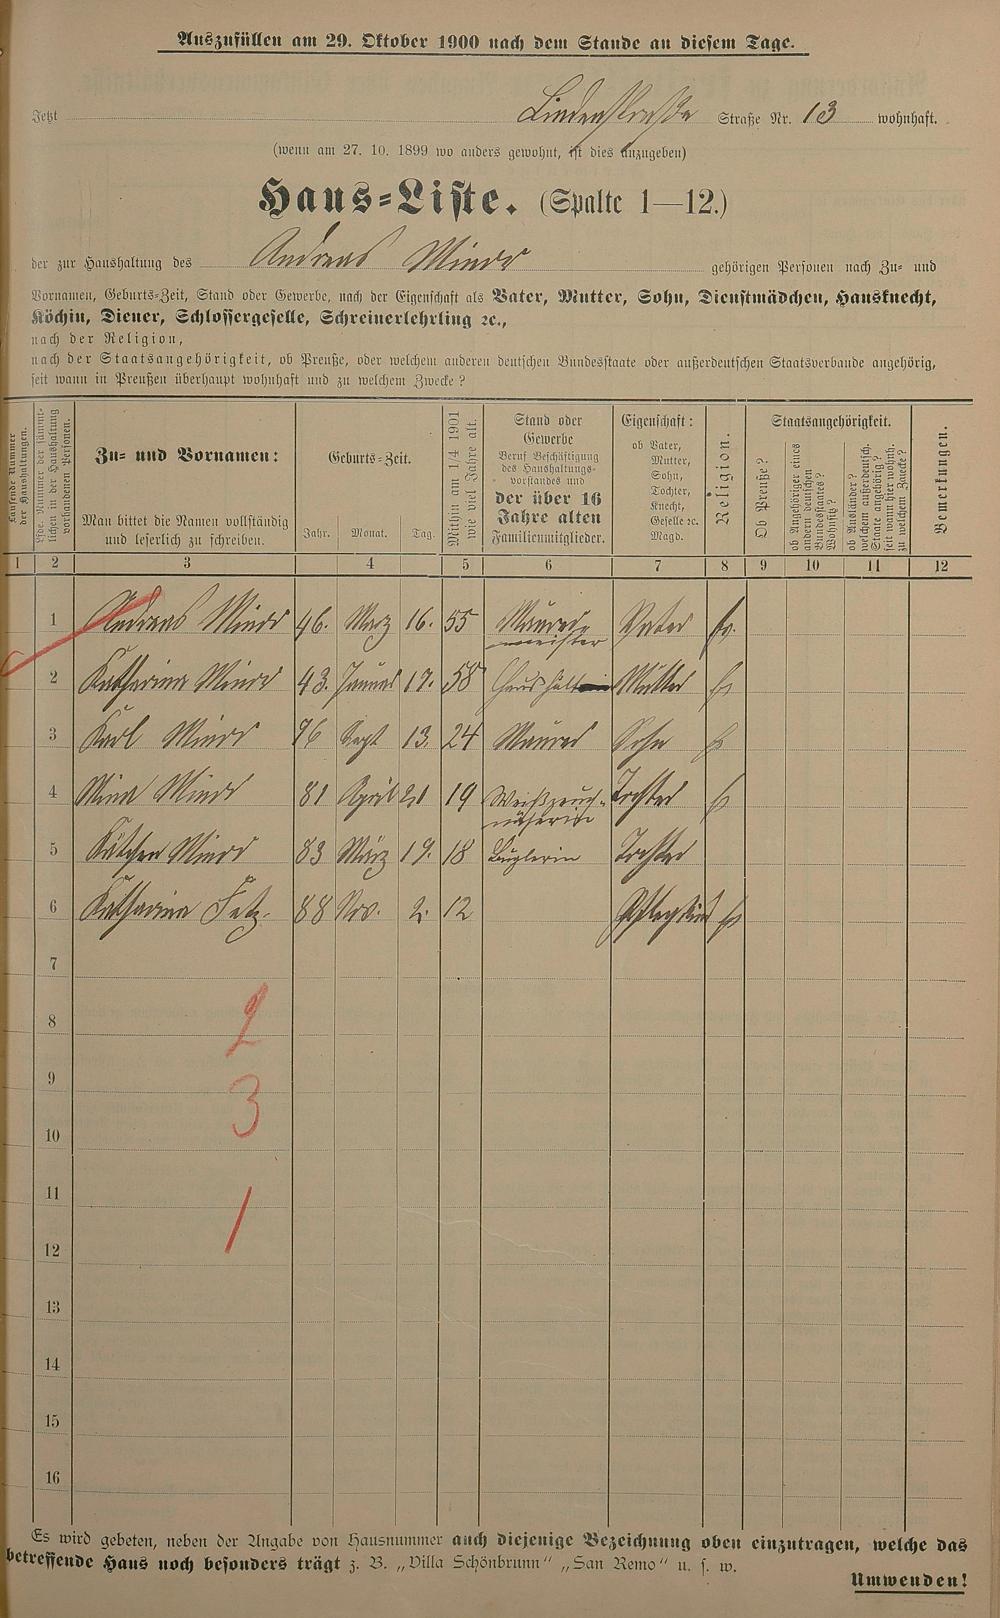 Auszufüllen am 29. Oktober 1900 nach dem Stande an diesem Tage.
Jetzt Lindenstraße Straße Nr. 13 wohnhaft.
(wenn am 27. 10. 1899 wo anders gewohnt, ist dies anzugeben)
Haus-Liste. (Spalte 1—12.)
der zur Haushaltung des Andreas Minor gehörigen Personen nach Zu- und
Vornamen, Geburts-Zeit, Stand oder Gewerbe, nach der Eigenschaft als Vater, Mutter, Sohn, Dienstmädchen, Hausknecht,
Köchin, Diener, Schlossergeselle, Schreinerlehrling ꝛc.,
nach der Religion,
nach der Staatsangehörigkeit, ob Preuße, oder welchem anderen deutschen Bundesstaate oder außerdeutschen Staatsverbande angehörig,
seit wann in Preußen überhaupt wohnhaft und zu welchem Zwecke?
Laufende Nummer der Haushaltungen.
Lfde. Nummer der sämmtlichen in der Haushaltung vorhandenen Personen.
Zu- und Vornamen:
Man bittet die Namen vollständig
und leserlich zu schreiben.
Geburts-Zeit.
Jahr. Monat. Tag.
Mithin am 1/4 1901 wie viel Jahre alt.
Stand oder
Gewerbe
Beruf Beschäftigung
des Haushaltungs-
vorstandes und
der über 16
Jahre alten
Familienmitglieder.
Eigenschaft:
ob Vater,
Mutter,
Sohn,
Tochter,
Knecht,
Geselle ꝛc.
Magd.
Religion.
Staatsangehörigkeit.
Ob Preuße?
ob Angehöriger eines andern deutschen Bundesstaates? Wohnsitz?
ob Ausländer? welchem außerdeutsch. Staate angehörig? seit wann hier wohnh. zu welchem Zwecke?
Bemerkungen.
1 2 3 4 5 6 7 8 9 10 11 12
1 Andreas Minor 46. Marz 16. 55 Maurer- Vater ev.
meister
2 Katharina Minor 43. Januar 17. 58 Mutter
3 Karl Minor 76 Sept 13. 24 Maurer Sohn
4 Mina Minor 81 April 21 19 Weißzeug- Tochter
näherin
5 Kätchen Minor 83 März 19. 18 Büglerin Tochter
6 Katharina Fetz. 88 Nov. 2. 12 Pflegkind
7
8 2
9 3
10
11 1
12
13
14
15
16
Es wird gebeten, neben der Angabe von Hausnummer auch diejenige Bezeichnung oben einzutragen, welche das
betreffende Haus noch besonders trägt z. B. „Villa Schönbrunn" „San Remo" u. s. w.
Umwenden!